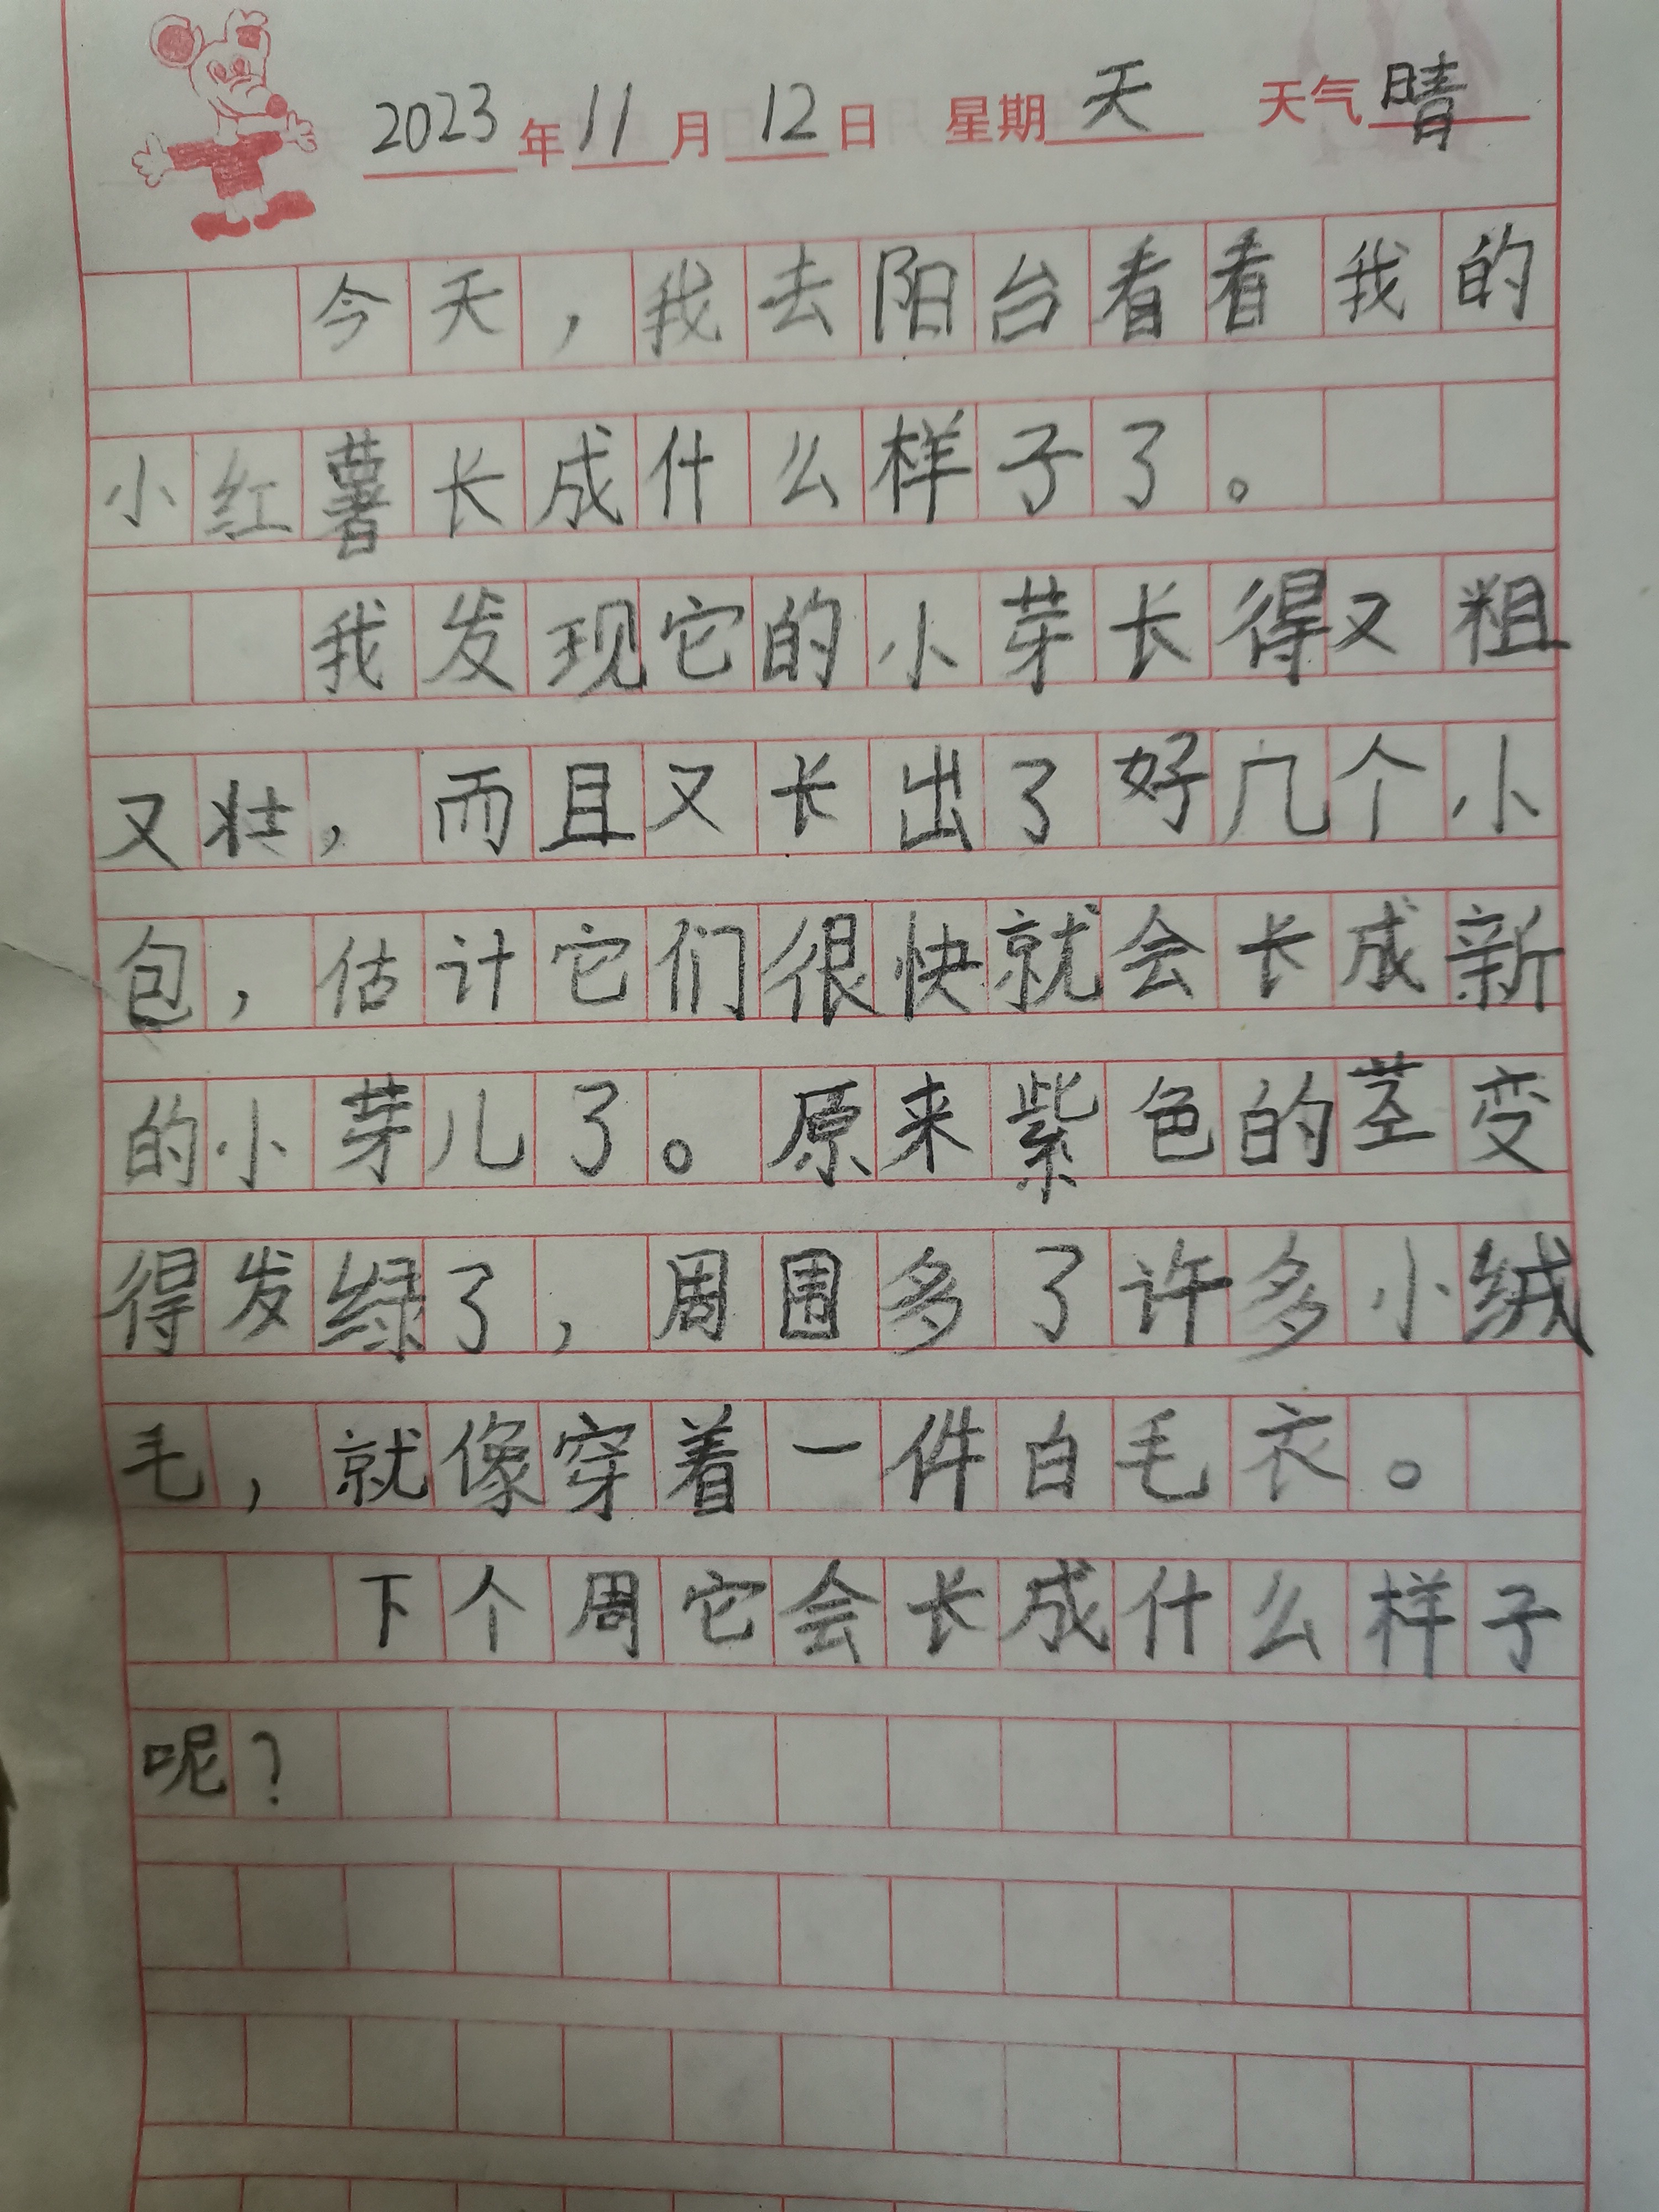 2023年11月12日 星期天 天气晴
今天，我去阳台看看我的
小红薯长成什么样子了。
我发现它的小芽长得又粗
又壮，而且又长出了好几个小
包，估计它们很快就会长成新
的小芽儿了。原来紫色的茎变
得发绿了，周围多了许多小绒
毛，就像穿着一件白毛衣。
下个周它会长成什么样子
呢？